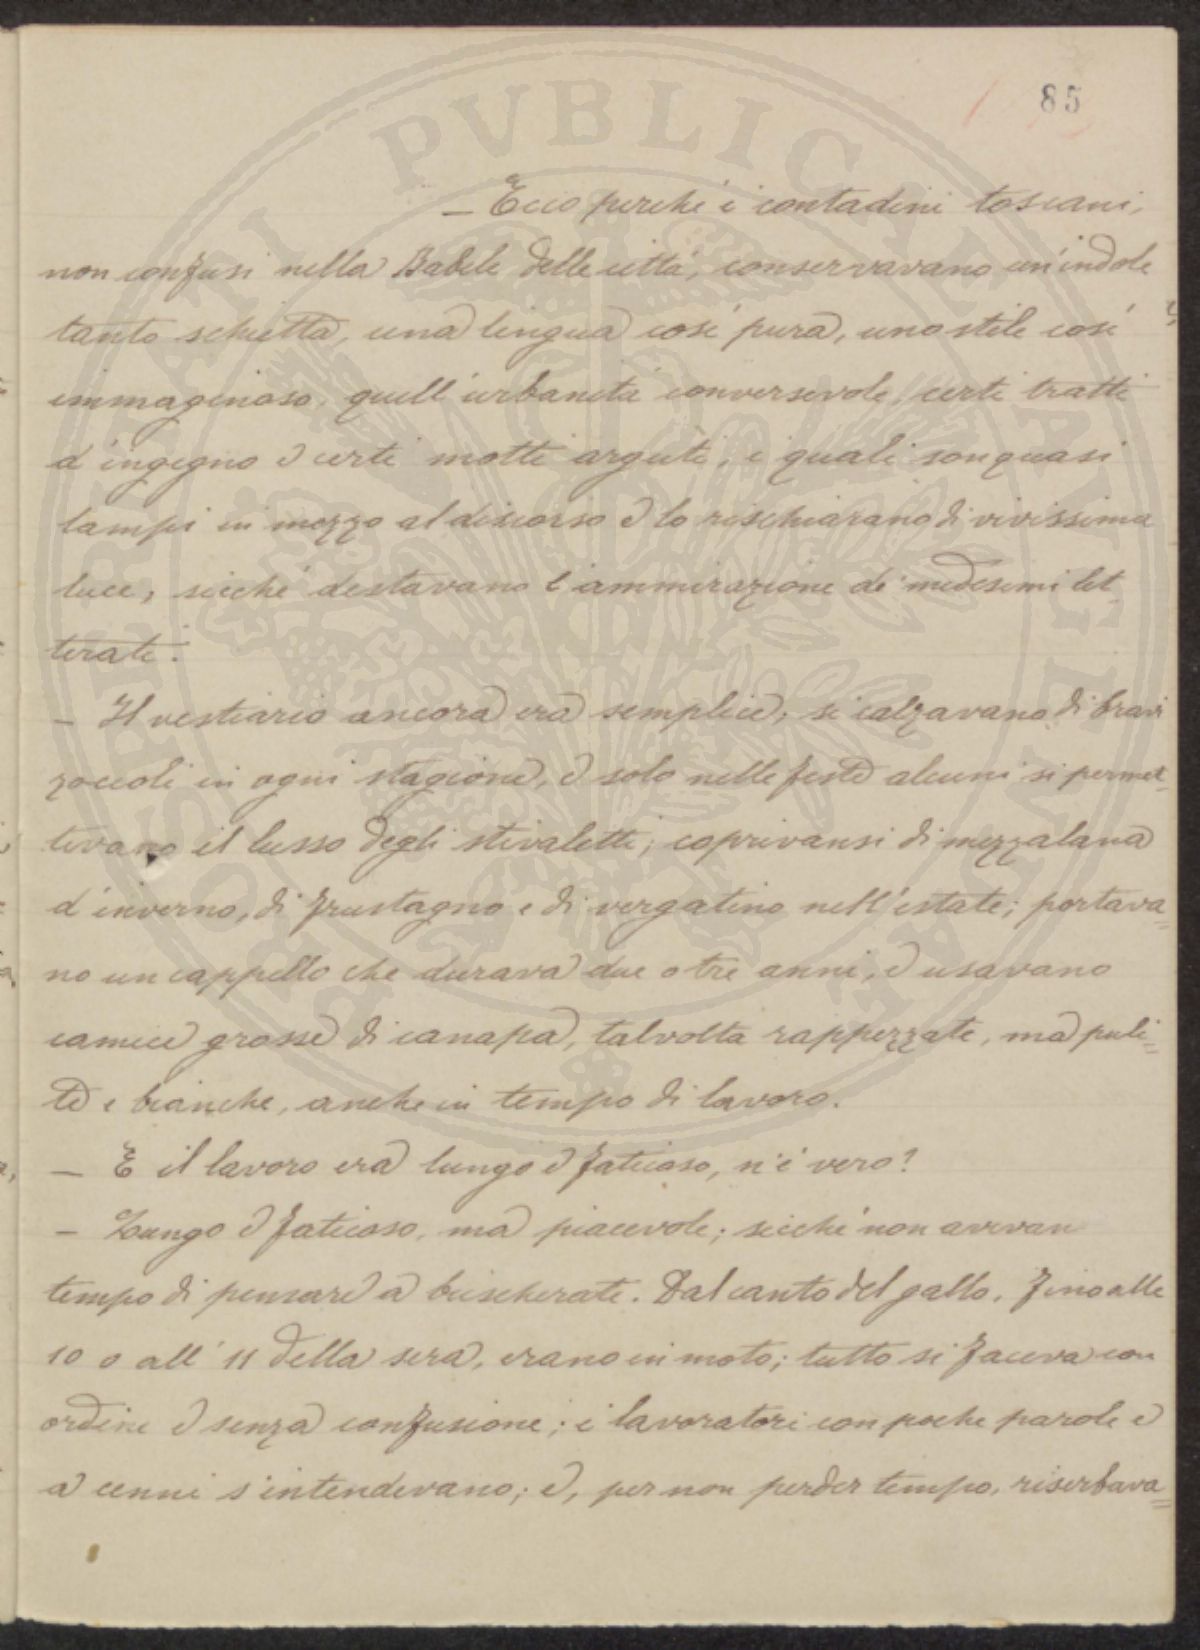 85
– Ecco perché i contadini toscani,
non confusi nella Babele delle città, conservavano un'indole
tanto schietta, una lingua così pura, uno stile così
immaginoso, quell'urbanità conversevole, certi tratti
d'ingegno e certi motti arguti, i quali son quasi
lampi in mezzo al discorso e lo rischiarano di vivissima
luce, sicché destavano l'ammirazione de' medesimi let-
terati.
– Il vestiario ancora era semplice; si calzavano di bravi
zoccoli in ogni stagione, e solo nelle feste alcuni si permet-
tevano il lusso degli stivaletti; coprivansi di mezzalana
d'inverno, di frustagno e di vergatino nell'estate; portava=
no un cappello che durava due o tre anni, e usavano
camice grosse di canapa, talvolta rappezzate, ma puli=
te e bianche, anche in tempo di lavoro.
– E il lavoro era lungo e faticoso, n'è vero?
– Lungo e faticoso, ma piacevole; sicché non avevan
tempo di pensare a buscherate. Dal canto del gallo, fino alle
10 o all'11 della sera, erano in moto; tutto si faceva con
ordine e senza confusione; i lavoratori con poche parole e
a cenni s'intendevano; e, per non perder tempo, riserbava=
PROSPERITATI PVBLICAE AVGENDAE